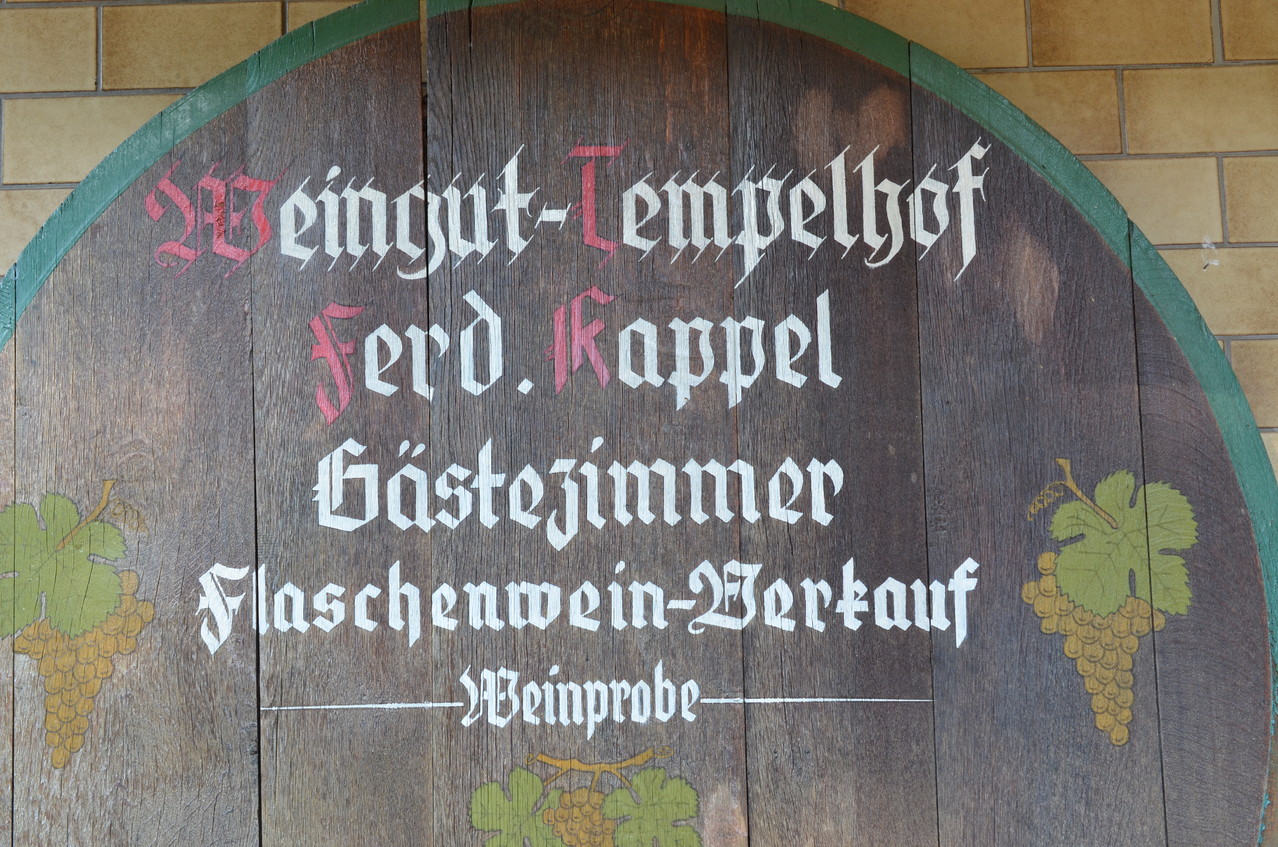 Weingut-Tempelhof
Ferd. Kappel
Gästezimmer
Flaschenwein-Verkauf
Weinprobe